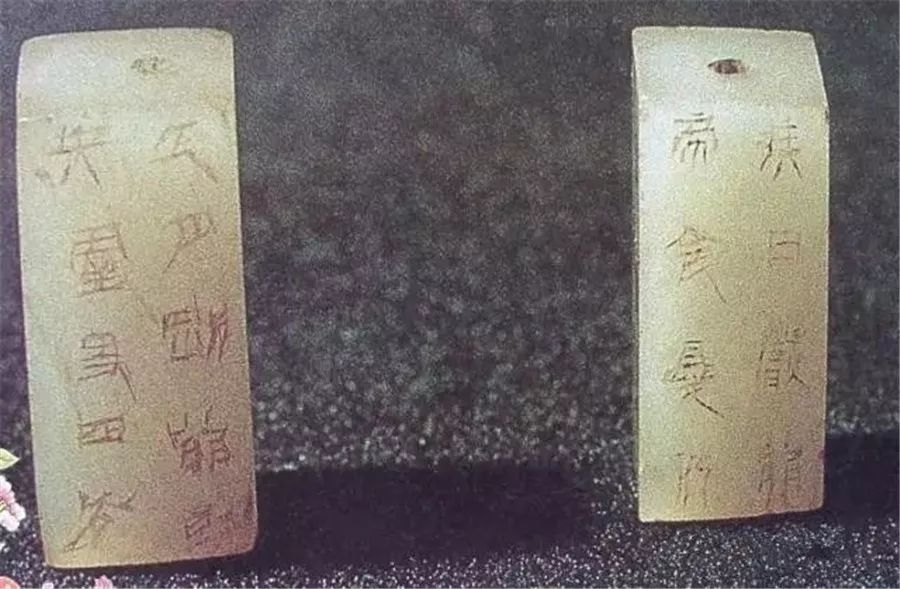 正月剛卯既
央靈殳四方
疾日嚴卯
帝令夔化